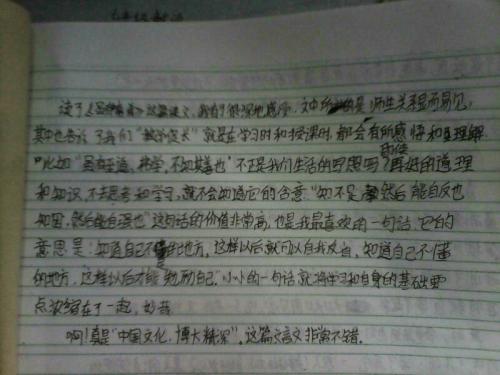 读了《虽有嘉肴》这篇课文，我有了很深地感悟，文中所的是师生关系显而易见，
其中也告诉了我们"教学相长"就是在学习时和授课时，都会有所感悟和见理解
的使
比如"虽有至道，弗学，不知其善也"不正是我们生活的写照吗？再好的道理
和知识，不去思考和学习，就不会知道它的含意"知不足，然后能自反也
知困，然后能自强也"这句话的价值非常高，也是我最喜欢的一句话，它的
意思是：知道自己不足地方，这样以后就可以自我反省，知道自己不懂
的地方，这样以后才能勉励自己"小小的一句话就将学习和自身的基础要
点浓缩在了一起，妙哉
啊！真是"中国文化，博大精深"，这篇文言文非常不错．